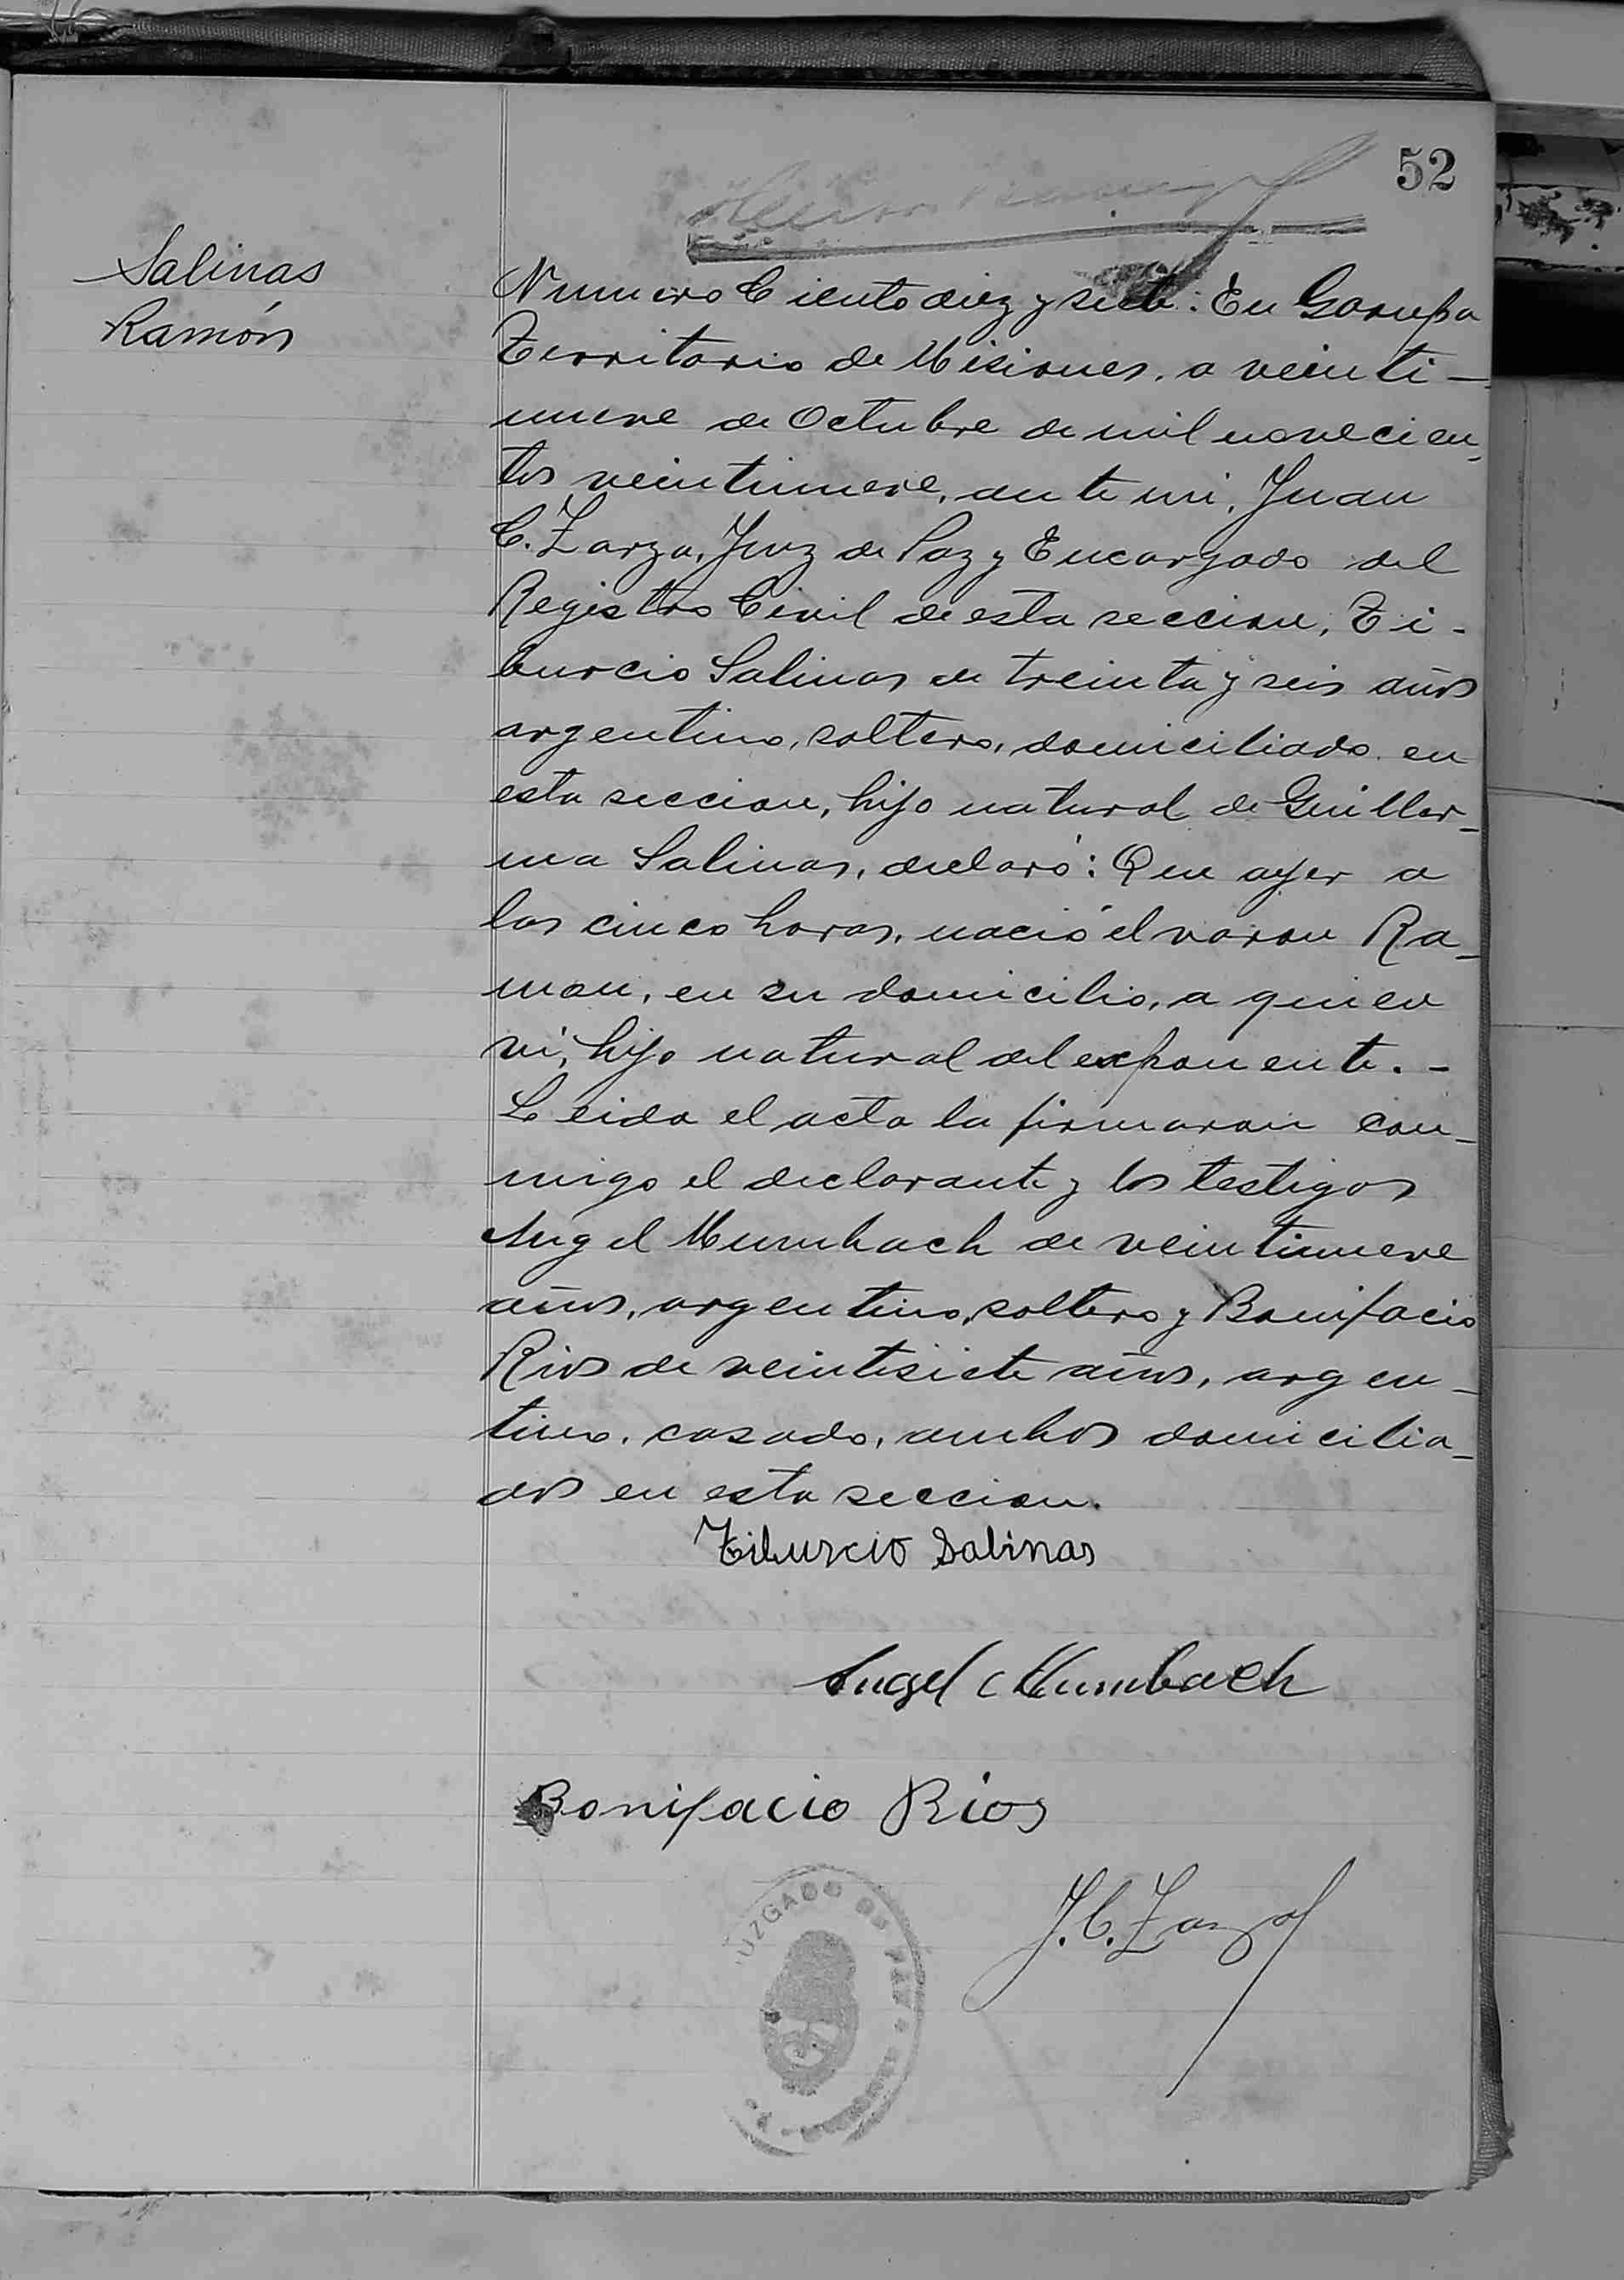 52
Salinas
Ramón
Numero Ciento diez y siete: En Garupa
Territorio de Misiones, a veinti-
nueve de Octubre de mil novecien-
tos veintinueve, ante mi, Juan
C. Zarza, Juez de Paz y Encargado del
Registro Civil de esta seccion, Ti-
burcio Salinas de treinta y seis años
argentino, soltero, domiciliado en
esta seccion, hijo natural de Guiller-
ma Salinas, declaró: Que ayer a
las cinco horas, nació el varon Ra-
mon, en su domicilio, a quien
vi, hijo natural del exponente. -
Leida el acta la firmaron con-
migo el declarante y los testigos
Angel Mumbach de veintinueve
años, argentino, soltero y Bonifacio
Rios de veintisiete años, argen-
tino, casado, ambos domicilia-
dos en esta seccion.
Tiburcio Salinas
Angel Mumbach
Bonifacio Rios
J. C. Zarza
UZGADO DE PAZ